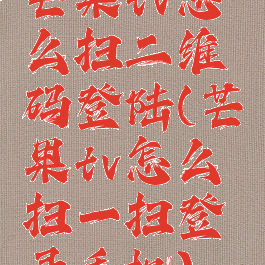 芒果tv怎
么扫二维
码登陆(芒
果tv怎么
扫一扫登